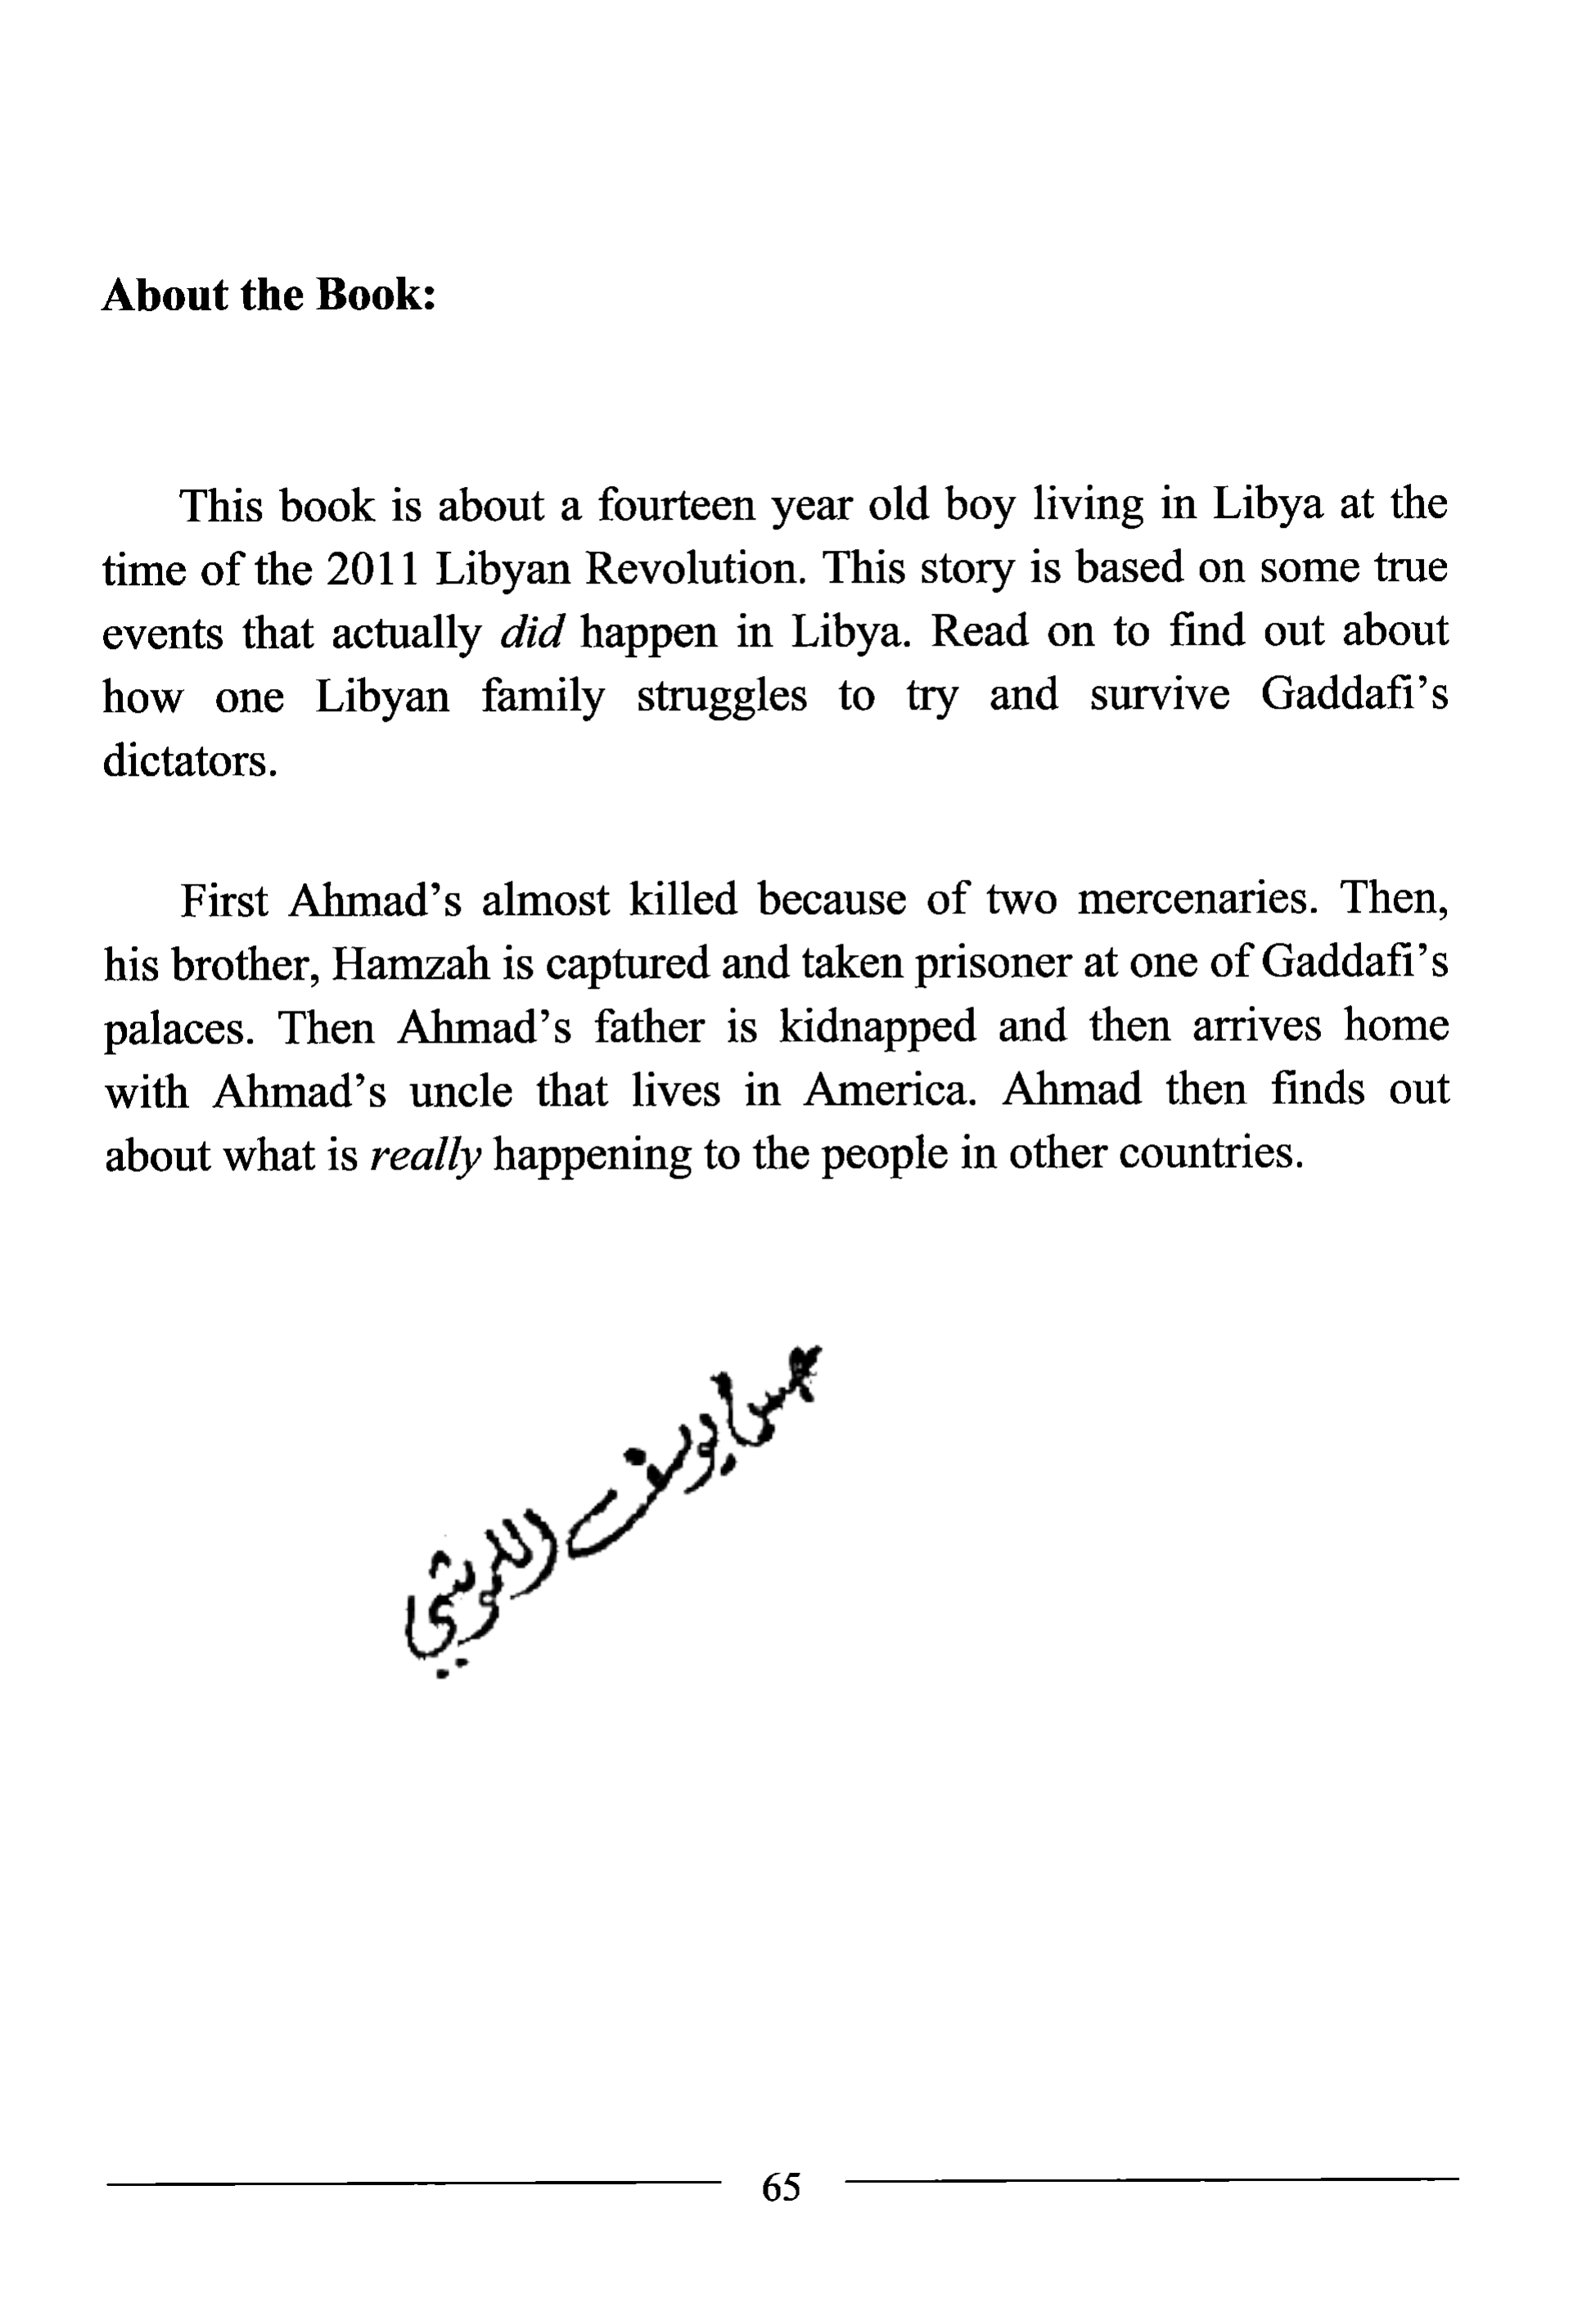 About the Book:
This book is about a fourteen year old boy living in Libya at the
time of the 2011 Libyan Revolution. This story is based on some true
events that actually did happen in Libya. Read on to find out about
how one Libyan family struggles to try and survive Gaddafi’s
dictators.
First Ahmad’s almost killed because of two mercenaries. Then,
his brother, Hamzah is captured and taken prisoner at one of Gaddafi’s
palaces. Then Ahmad’s father is kidnapped and then arrives home
with Ahmad’s uncle that lives in America. Ahmad then finds out
about what is really happening to the people in other countries.
يوسف
65